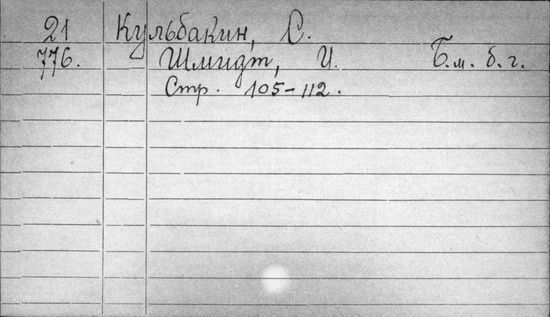 21 Кульбакин, С.
776. Шмидт, И. Б.м. б.г.
Стр. 105-112.